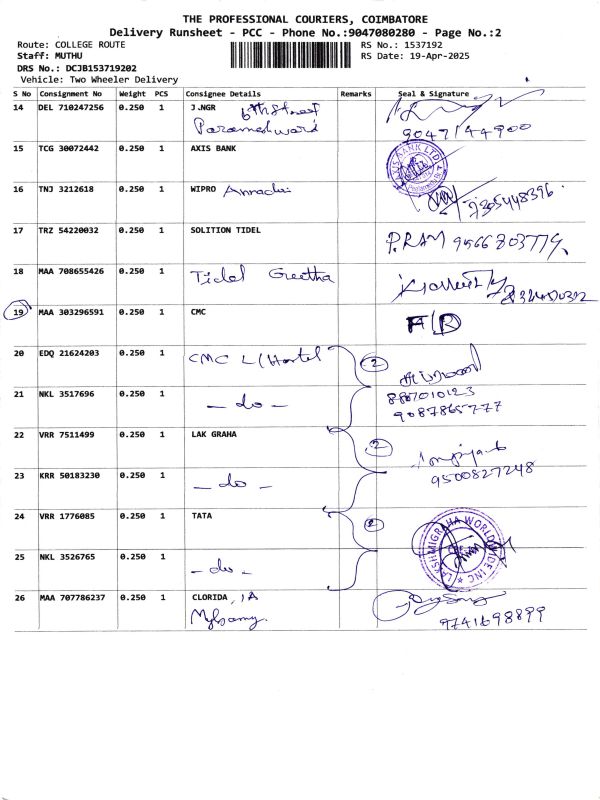 THE PROFESSIONAL COURIERS, COIMBATORE
Delivery Runsheet - PCC - Phone No.:9047080280 - Page No.:2
Route: COLLEGE ROUTE RS No.: 1537192
Staff: MUTHU RS Date: 19-Apr-2025
DRS No.: DCJB153719202
Vehicle: Two Wheeler Delivery
S No Consignment No Weight PCS Consignee Details Remarks Seal & Signature
14 DEL 710247256 0.250 1 J.NGR 6th Street
Parameshwari 9047144900
15 TCG 30072442 0.250 1 AXIS BANK
16 TNJ 3212618 0.250 1 WIPRO
9305448396
17 TRZ 54220032 0.250 1 SOLITION TIDEL P.RAM
18 MAA 708655426 0.250 1 Tidel Geetha
19 MAA 303296591 0.250 1 CMC
20 EDQ 21624203 0.250 1 CMC L/Hostel 2
21 NKL 3517696 0.250 1 - do - 8867010123
9087865777
22 VRR 7511499 0.250 1 LAK GRAHA 2
23 KRR 50183230 0.250 1 - do - 9500827248
24 VRR 1776085 0.250 1 TATA 2 LAKSHMIGRAHA WORLDWIDE INC
25 NKL 3526765 0.250 1 - do -
26 MAA 707786237 0.250 1 CLORIDA, IA
9741698899